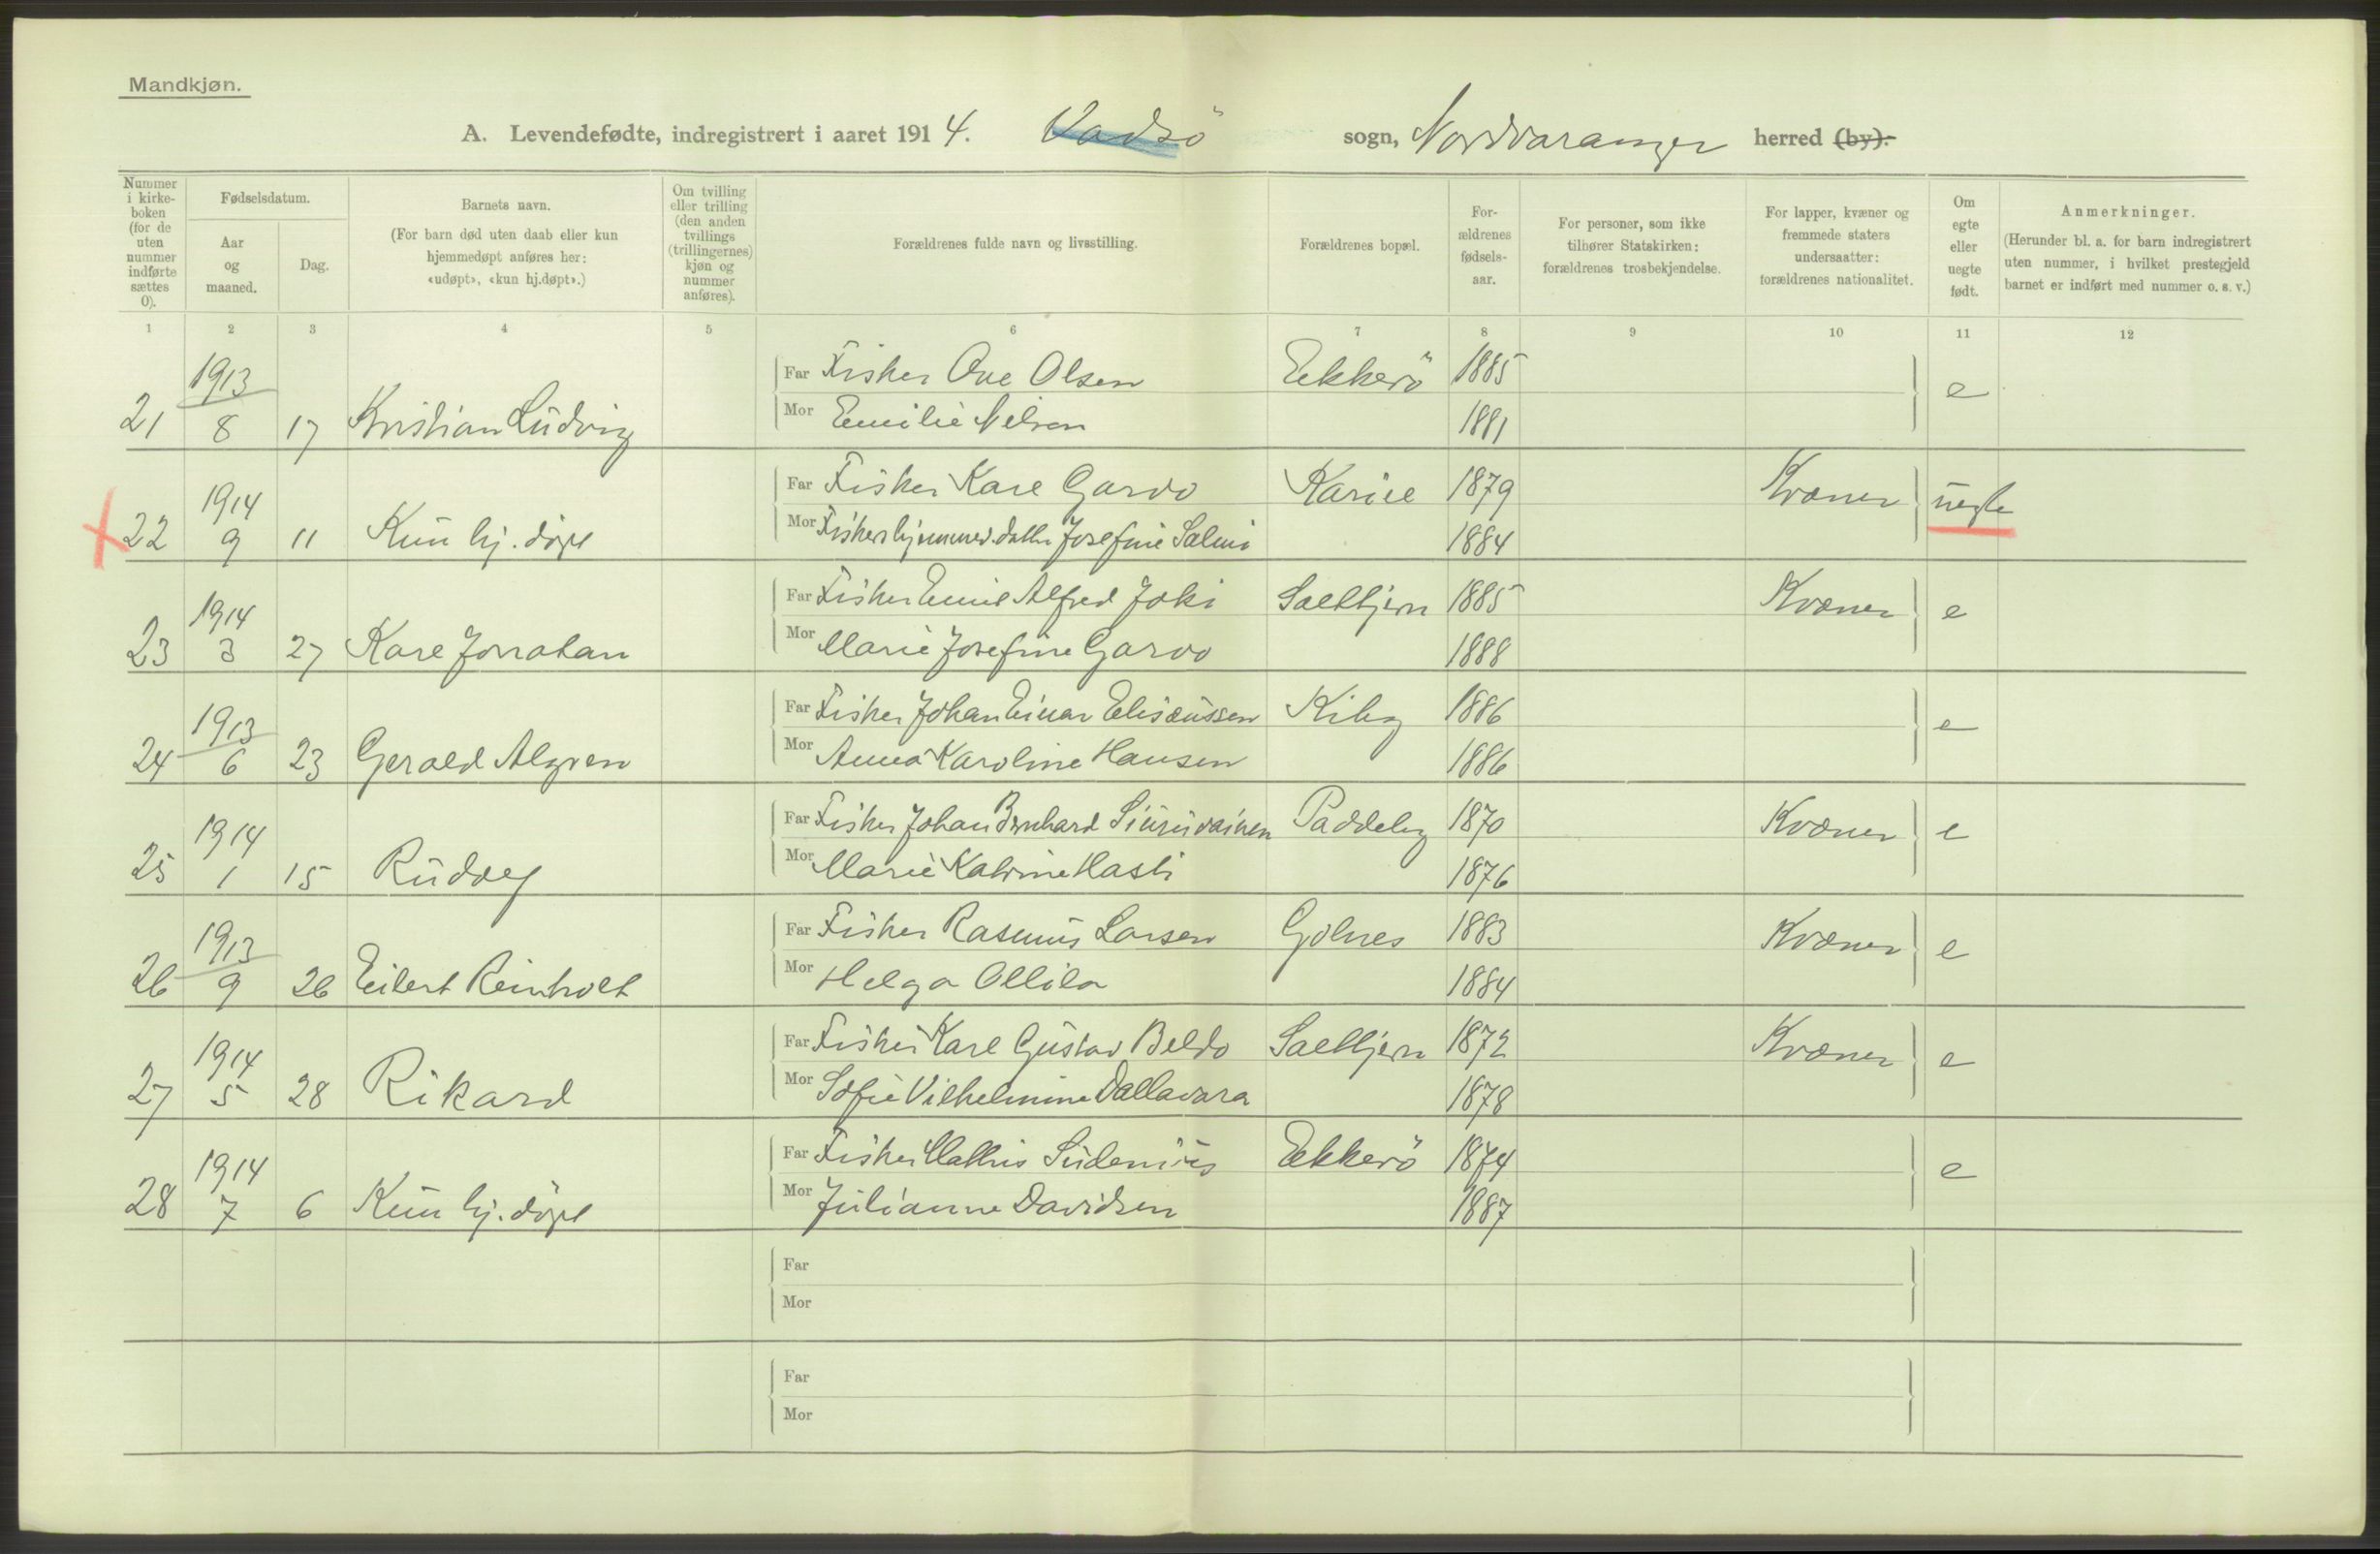 Mandkjøn.
A. Levendefødte, indregistrert i aaret 1914. Vadsö sogn, Nordvaranger herred (by).
Nummer i kirke-boken (for de uten nummer indførte sættes 0).
Fødselsdatum.
Aar og maaned.
Dag.
Barnets navn.
(For barn død uten daab eller kun hjemmedøpt anføres her: «udøpt», «kun hj.døpt».)
Om tvilling eller trilling (den anden tvillings (trillingernes) kjøn og nummer anføres).
Forældrenes fulde navn og livsstilling.
Forældrenes bopæl.
For-ældrenes fødsels-aar.
For personer, som ikke tilhører Statskirken: forældrenes trosbekjendelse.
For lapper, kvæner og fremmede staters undersaatter: forældrenes nationalitet.
Om egte eller uegte født.
Anmerkninger.
(Herunder bl. a. for barn indregistrert uten nummer, i hvilket prestegjeld barnet er indført med nummer o. s. v.)
1 2 3 4 5 6 7 8 9 10 11 12
1913 Far Fisker Ove Olsen Ekkerö 1885 e
21 8 17 Kristian Ludvig Mor Emilie Nilsen 1881
1914 Far Fisker Karl Garvo Kariel 1879 Kvæner uegte
22 9 11 Kun hj. döpt Mor Josefine Salmi 1884
1914 Far Fisker Emil Alfred Joki Saltjern 1885 Kvæner e
23 3 27 Karl Jonatan Mor Marie Josefine Garvo 1888
1913 Far Fisker Johan Einar Elisæussen Kiby 1886 e
24 6 23 Gerald Mor Anna Karoline Hansen 1886
1914 Far Fisker Johan Bernhard Siuruvainen Paddeby 1870 Kvæner e
25 1 15 Rudolf Mor Marie Katrine Hasti 1876
1913 Far Fisker Rasmus Larsen Golnes 1883 Kvæner e
26 9 26 Eilert Reinholt Mor Helga Ollila 1884
1914 Far Fisker Karl Gustav Beldo Saltjern 1872 Kvæner e
27 5 28 Rikard Mor Sofie Vilhelmine Dallavara 1878
1914 Far Fisker Mathis Sudenius Ekkerö 1874 e
28 7 6 Kun hj. döpt Mor Julianne Davidsen 1887
Far
Mor
Far
Mor